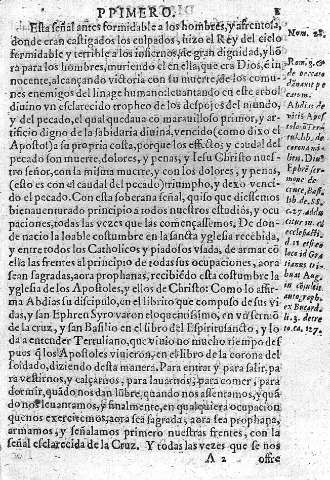 PPIMERO.
Esta señal antes formidable a los hombres, y afrentosa,
donde eran castigados los culpados, hizo el Rey del cielo
formidable y terrible a los infiernos, de gran dignidad, y hō
ra para los hombres, muriendo el en ella, que era Dios, è in
nocente, alcançando victoria con su muerte, de los comu-
nes enemigos del linage humano: leuantando en este arbol
diuino vn esclarecido tropheo de los despojos del mundo,
y del pecado, el qual quedaua cō marauilloso primor, y ar-
tificio digno de la sabiduria diuina, vencido (como dixo el
Apostol) a su propia costa, porque los effectos, y caudal del
pecado son muerte, dolores, y penas, y Iesu Christo nues-
tro señor, con la misma muerte, y con los dolores, y penas,
(esto es con el caudal del pecado) triumpho, y dexo venci-
do el pecado. Con esta soberana señal, quiso que diessemos
bienauenturado principio a todos nuestros estudios, y ocu
paciones, todas las vezes que las començassemos. De don-
de nacio la loable costumbre en la sancta yglesia recebida,
y entre todos los Catholicos y piados vsada, de armar cō
ella las frentes al principio de todas sus ocupaciones, aora
sean sagradas, aora prophanas, recibiēdo esta costumbre la
yglesia de los Apostoles, y ellos de Christo: Como lo affir-
ma Abdias su discipulo, en el librito que compuso de sus vi
das, y san Ephren Syro varon eloquentissimo, en vn sermō
de la cruz, y san Basilio en el libro del Espiritu sancto, y lo
da a entender Tertuliano, que viuio no mucho tiempo des
pues q̃ los Apostoles vinieron, en el libro de la corona del
soldado, diziendo desta manera. Para entrar y para salir, pa
ra vestirnos, y calçarnos, para lauarnos, y para comer, para
dormir, quādo nos dan lūbre, quando nos assentamos, y quā
do nos leuantamos, y finalmente, en qualquiera ocupacion
que nos exercitemos, aora sea sagrada, aora sea prophana,
armamos, y señalamos primero nuestras frentes, con la
señal esclarecida de la Cruz. Y todas las vezes que se nos
A 2 offre
Num. 28.